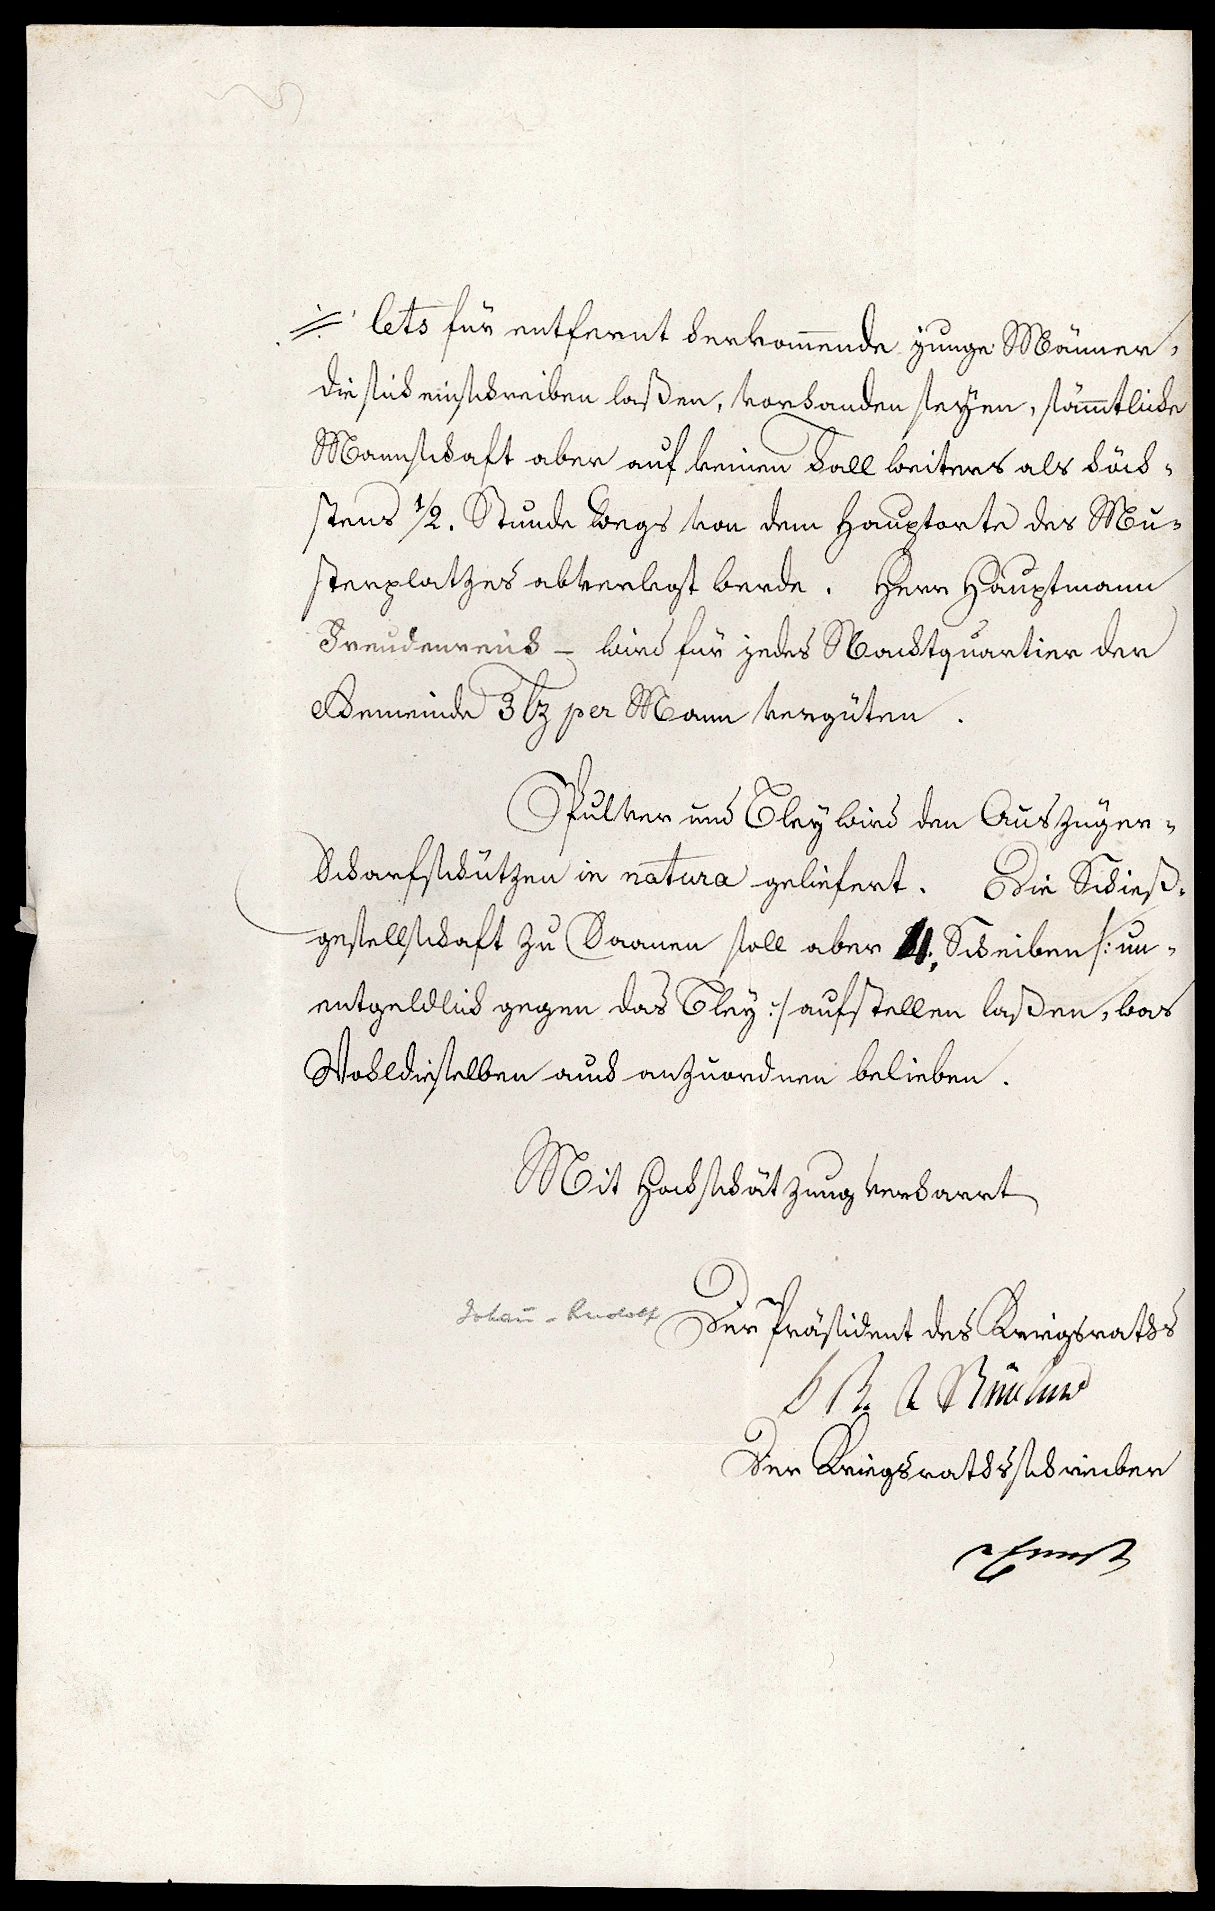 lets für entfernt herkom̄ende junge Männer,
die sich einschreiben laßen, vorhanden seyen, säm̄tliche
Mannschaft aber auf keinen Fall weiters als höch-
stens 1/2. Stunde Wegs von dem Hauptorte des Mu-
sterplatzes abverlegt werde. Herr Hauptmann
Freudenreich – wird für jedes Nachtquartier der
Gemeinde 3 bz per Mann vergüten.
Pulver und Bley wird den Auszüger-
Scharfschützen in natura geliefert. Die Schieß-
gesellschaft zu Saanen soll aber 4. Scheiben /: un-
entgeldlich gegen das Bley :/ aufstellen laßen, was
Wohldieselben auch anzuordnen belieben.
Mit Hochschätzung verharrt
Johan̄ - Rudolf Der Präsident des Kriegsraths
Der Kriegsrathsschreiber
Ernst